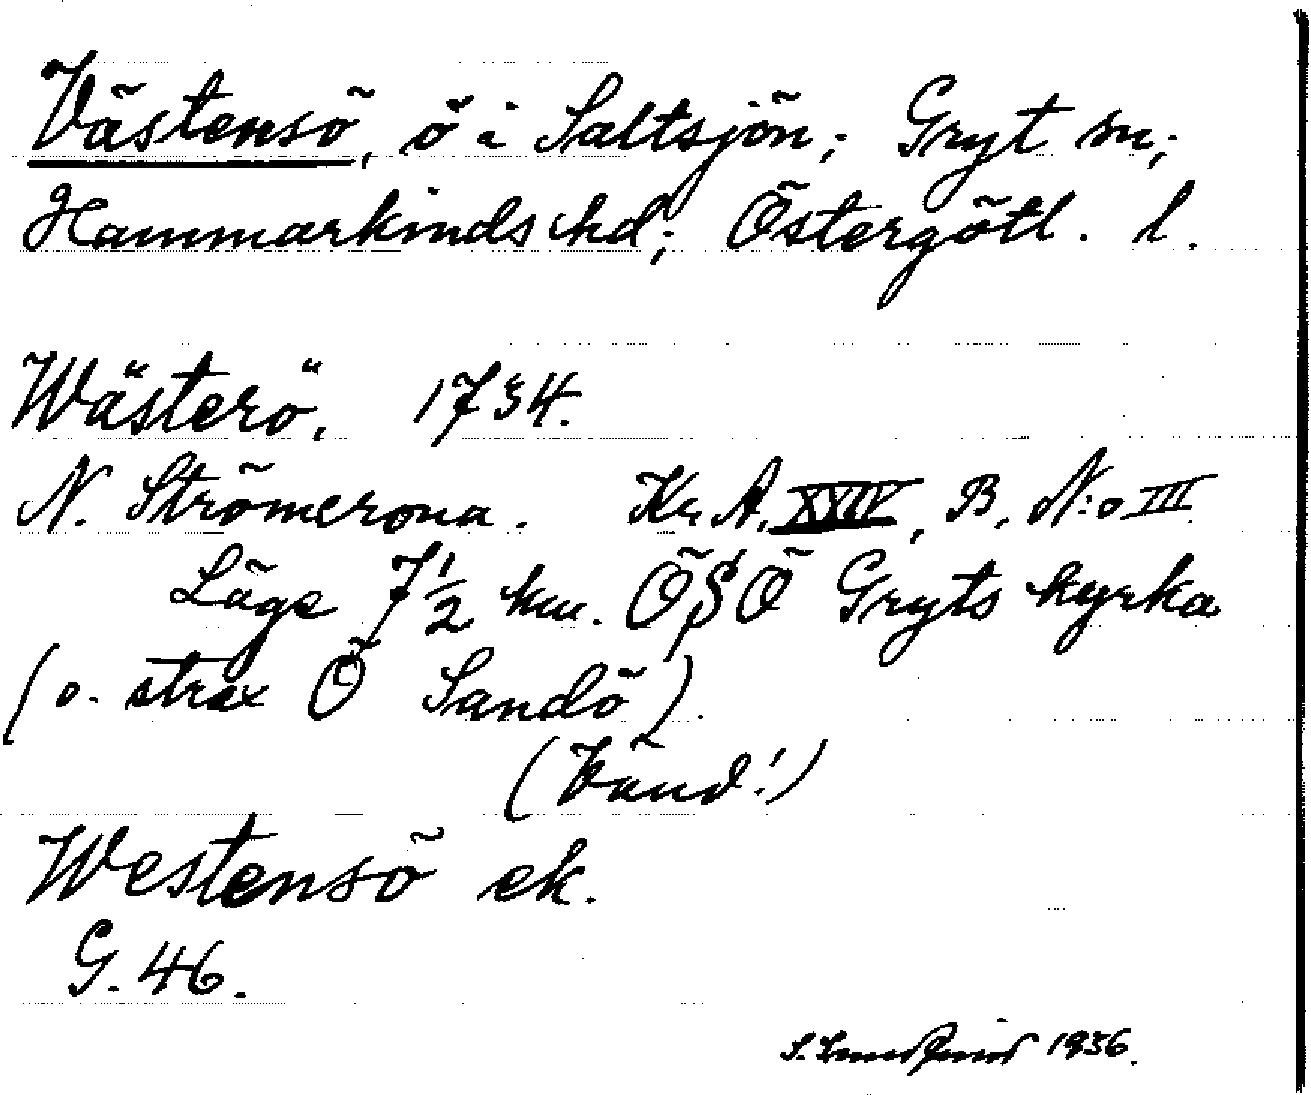 Västensö, ö i Saltsjön; Gryt sn;
Hammarkinds hd; Östergötl. l.
Wästerö, 1734.
N. Strömerona. Kr. A. XXIV, B, N:o III
Läge 7½ km. ÖSÖ Gryts kyrka
(o. strax Ö Sandö).
(Vänd!)
Westensö ek.
G. 46.
S. 1936.